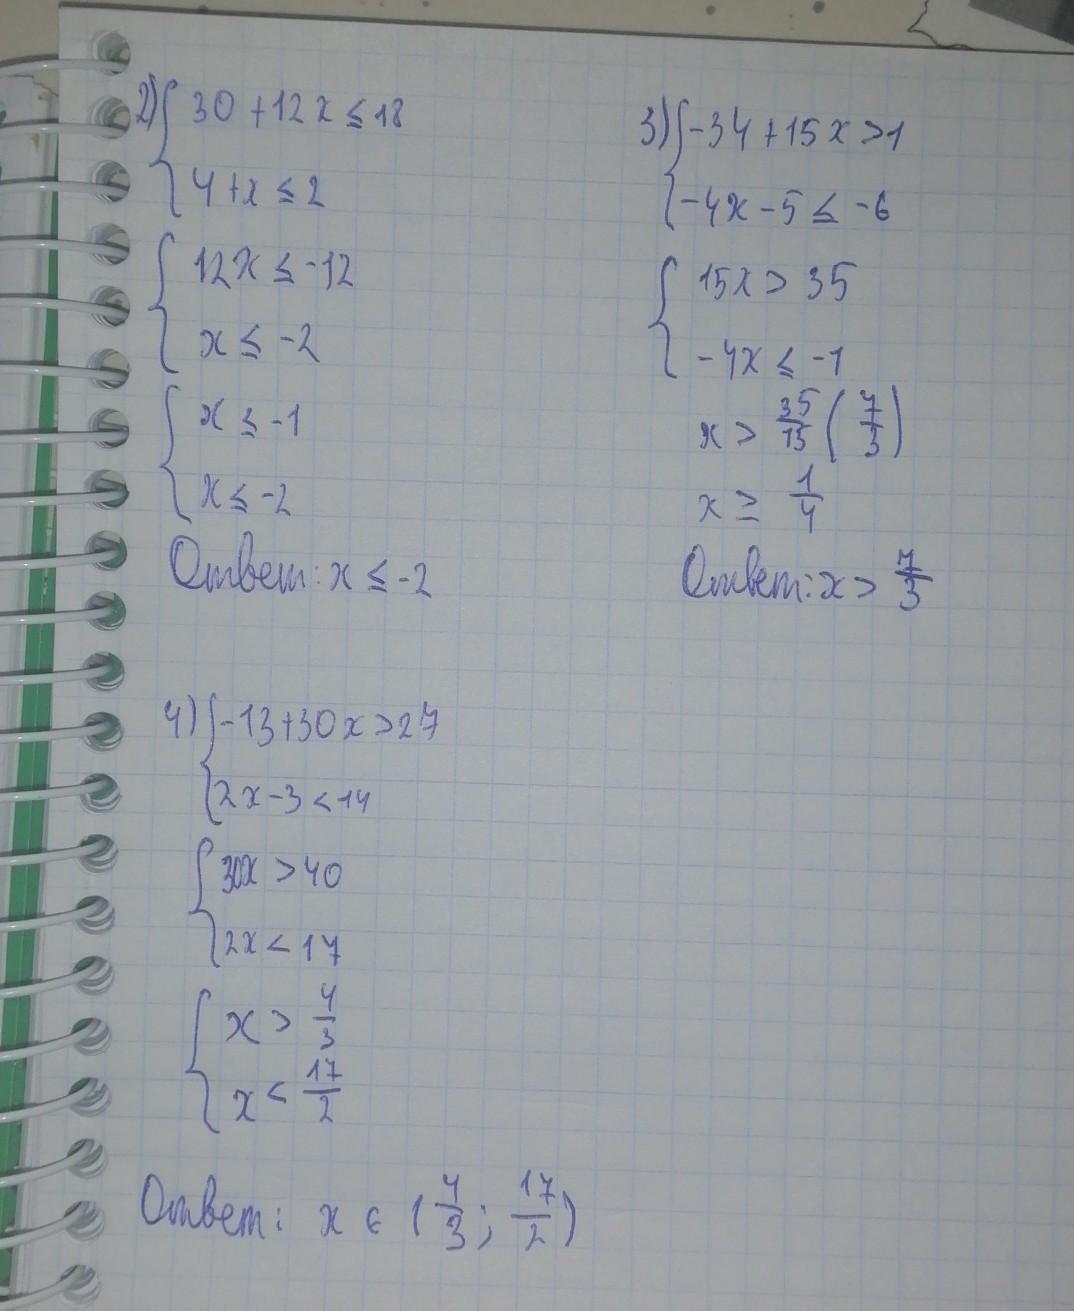 2) { 30 + 12x ≤ 18
4 + x ≤ 2
{ 12x ≤ -12
x ≤ -2
{ x ≤ -1
x ≤ -2
Ответ: x ≤ -2
3) { -34 + 15x > 1
-4x - 5 ≤ -6
{ 15x > 35
-4x ≤ -1
x > 35/15 (7/3)
x ≥ 1/4
Ответ: x > 7/3
4) { -13 + 30x > 27
2x - 3 < 14
{ 30x > 40
2x < 17
{ x > 4/3
x < 17/2
Ответ: x ∈ (4/3; 17/2)